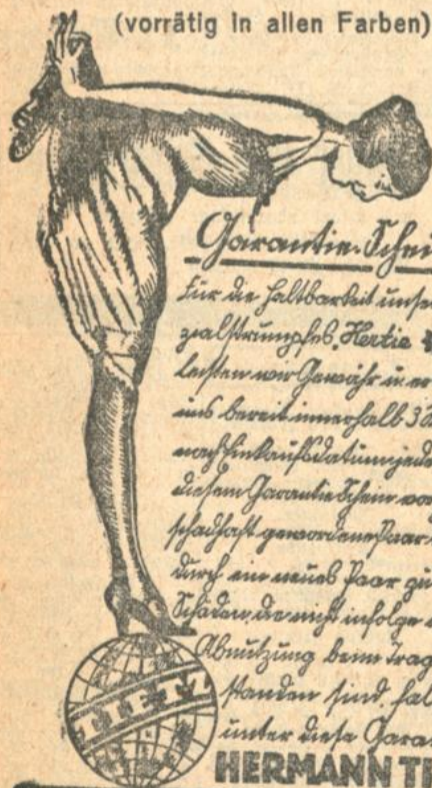 (vorrätig in allen Farben)
Garantie-Schei
Für die Haltbarkeit unse
zialstrumpfes „Hertie
leisten wir Gewähr u. er
uns bereit innerhalb 3
nach Einkaufsdatum jede
diesem Garantie Schein vor
schadhaft gewordene Paar
durch ein neues Paar zu
Schäden, die nicht infolge
Abnutzung beim Trag
standen sind, fal
unter diese Gara
TIETZ
HERMANN TI